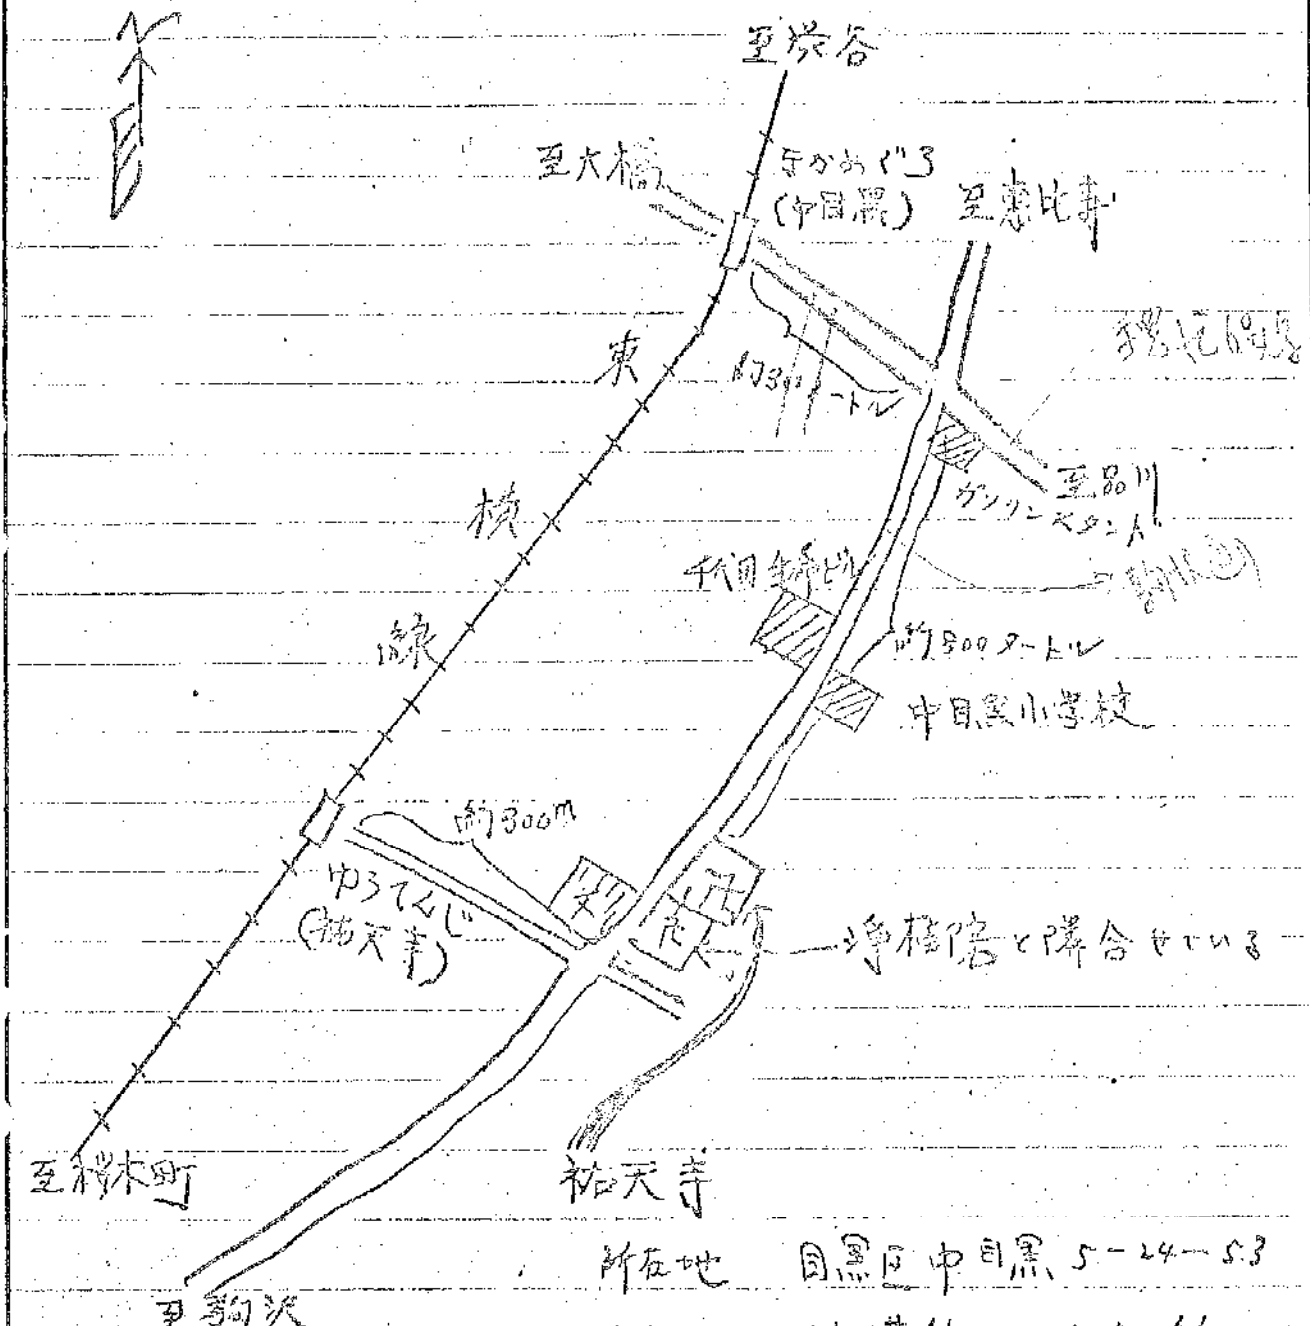 至渋谷
至大橋
なかめぐろ
(中目黒)
至恵比寿
東
横
線
ガソリン
スタンド
至品川
千代田生命ビル
約800メートル
中目黒小学校
約300m
ゆうてんじ
(祐天寺)
浄桂院と隣合せている
至桜木町
祐天寺
所在地 目黒区中目黒 5-24-53
至駒沢